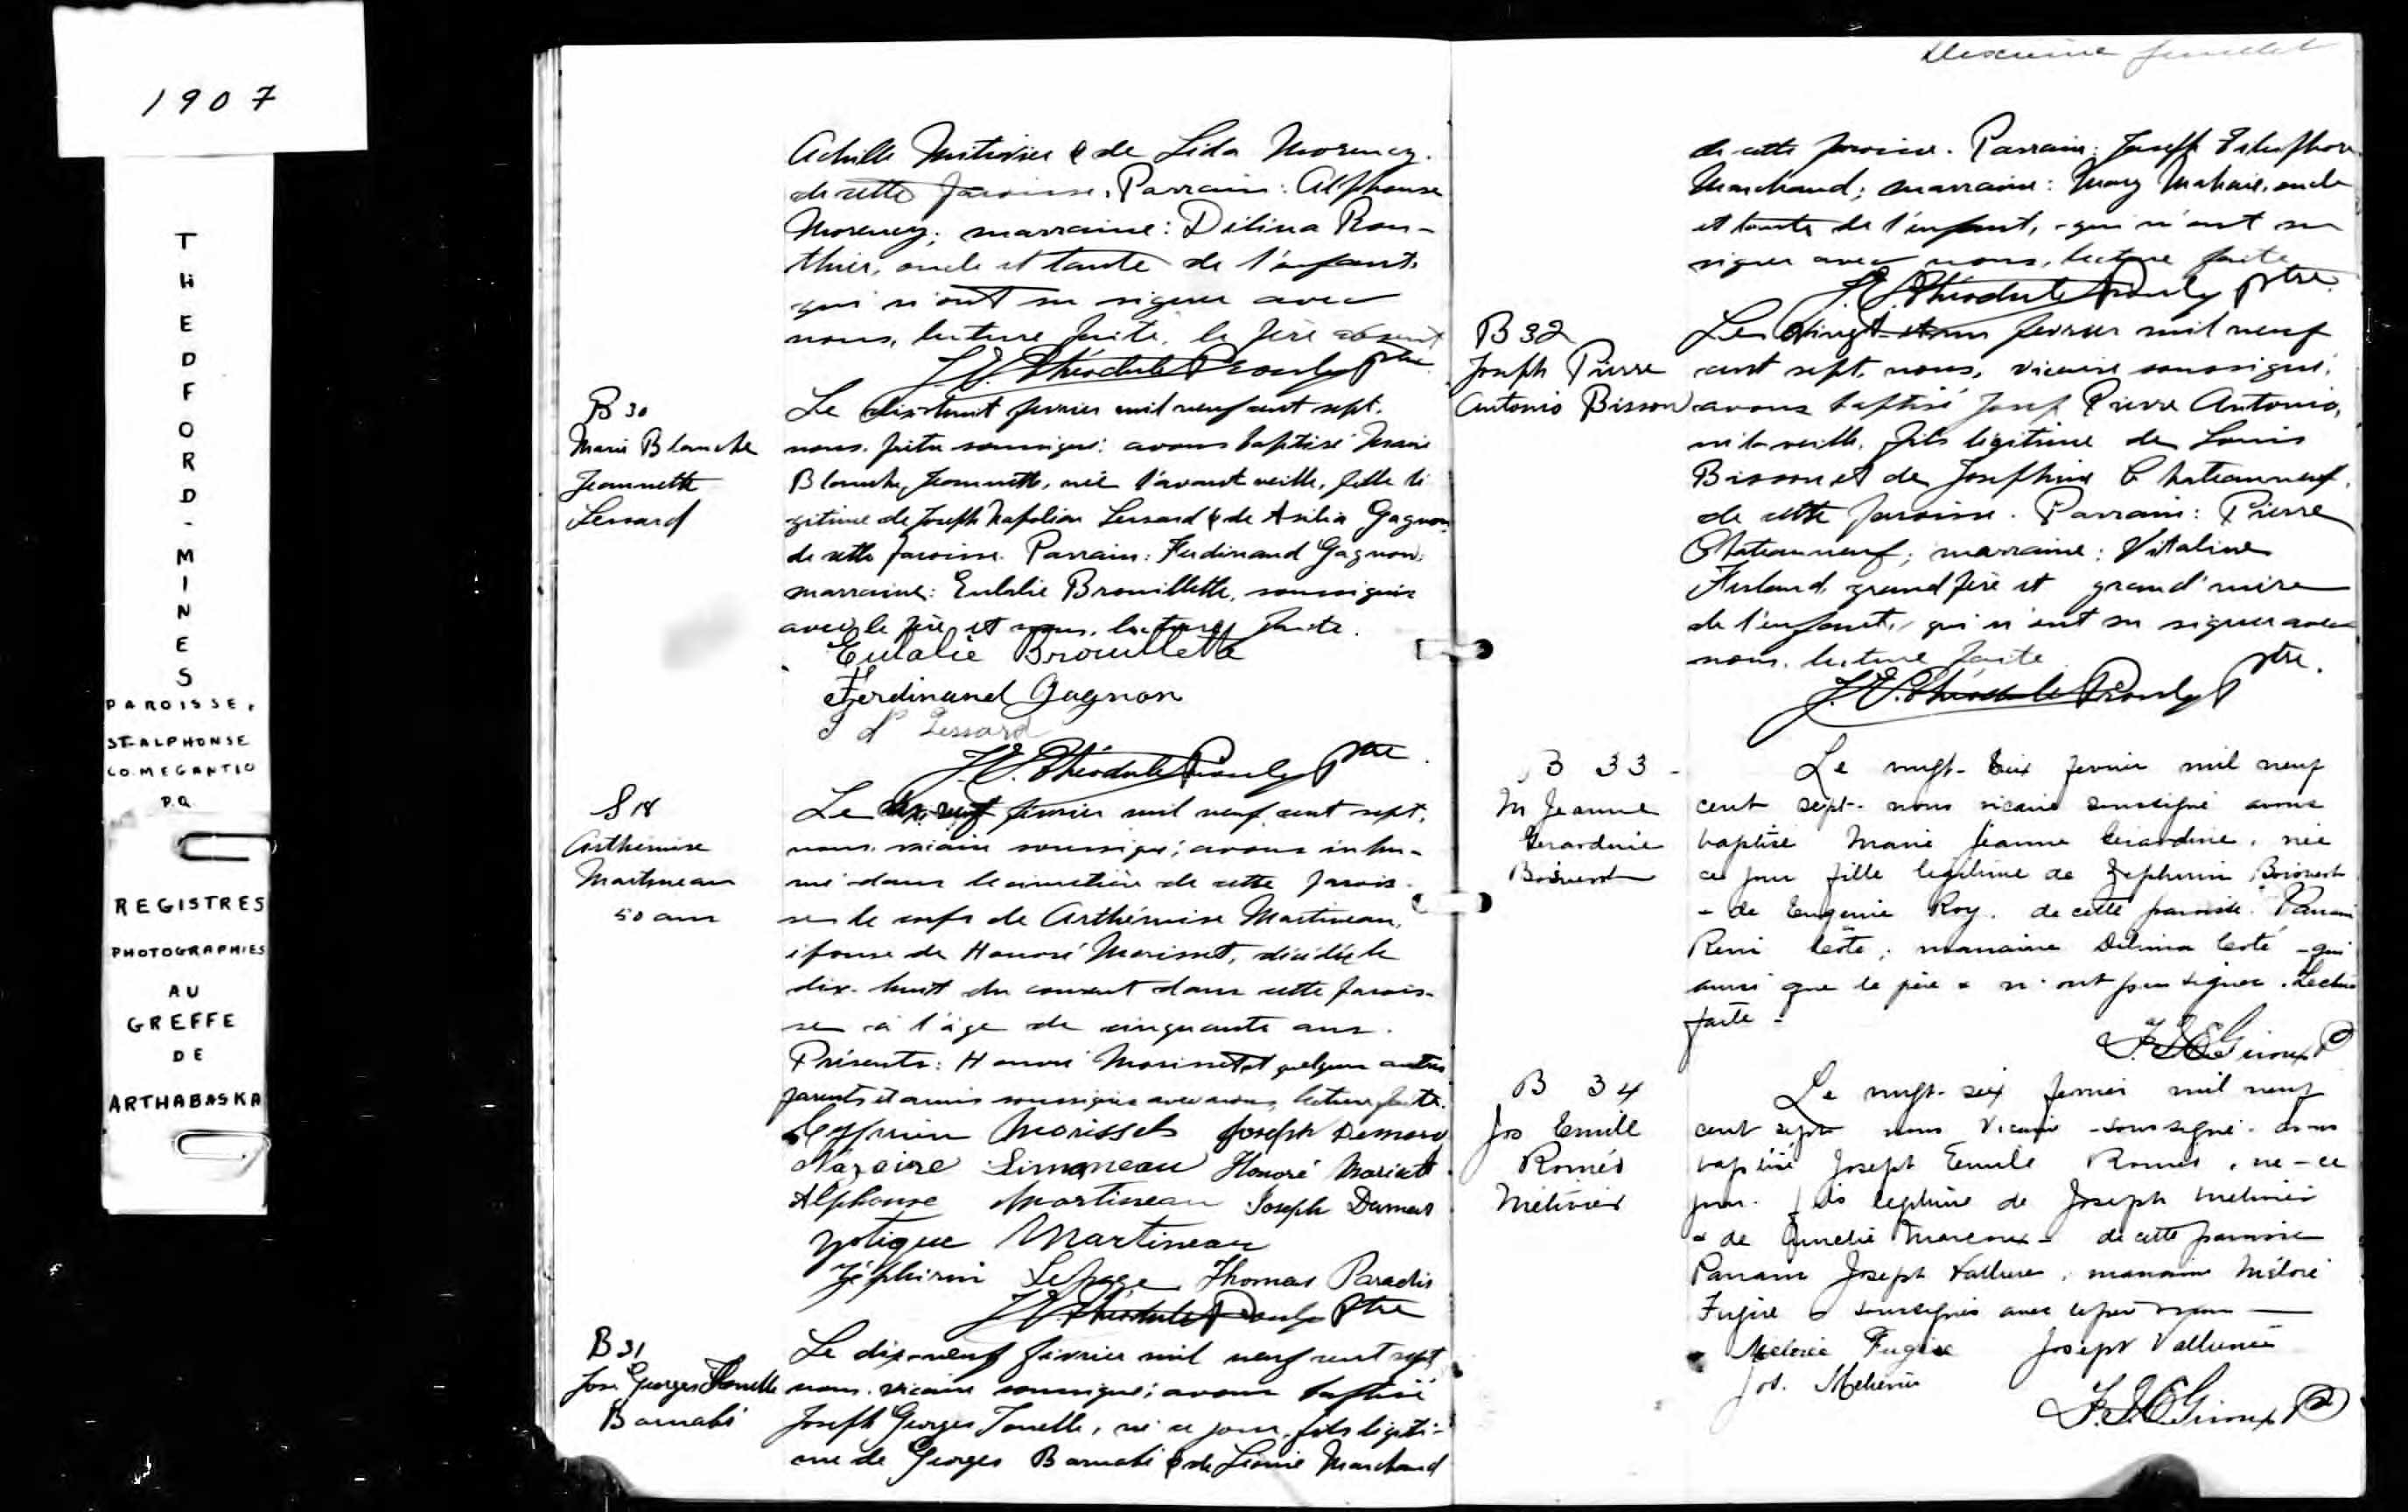 1907
THEDFORD-MINES
PAROISSE,
ST-ALPHONSE
CO. MEGANTIC
P.Q.
REGISTRES
PHOTOGRAPHIES
AU
GREFFE
DE
ARTHABASKA
Achille Métivier & de Lida Morency.
de cette paroisse. Parrain: Alphonse
Morency; marraine: Délina Rou-
thier, oncle et tante de l'enfant.
qui n'ont su signer avec
nous, lecture faite. le père absent
J. E. Théodule Prouly Ptre.
B 30
Marie Blanche
Jeannette
Lessard
Le dix-huit février mil neuf cent sept.
nous, prêtre soussigné: avons baptisé Marie
Blanche, Jeannette, née l'avant veille, fille lé
gitime de Joseph Napoléon Lessard & de Asilia Gagnon
de cette paroisse. Parrain: Ferdinand Gagnon;
marraine: Eulalie Brouillette, soussignés
avec le père et nous, lecture faite.
Eulalie Brouillette
Ferdinand Gagnon
J N Lessard
J. E. Théodule Prouly Ptre.
S 18
Arthémise
Martineau
50 ans
Le dix neuf février mil neuf cent sept,
nous, vicaire soussigné; avons inhu-
mé dans le cimetière de cette parois-
se le corps de Arthémise Martineau,
épouse de Honoré Morisset, décédée le
dix-huit du courant dans cette parois-
se à l'âge de cinquante ans.
Présents: Honoré Morisset et quelques autres
parents et amis soussignés avec nous, lecture faite.
Morissets Joseph Demers
Nazaire Simoneau Honoré
Alphonse Martineau Joseph Damas
Martineau
Zéphirin Lepage Thomas Paradis
J. E. Théodule Prouly Ptre
B 31
Jos. Georges
Barnabé
Le dix-neuf février mil neuf cent sept
nous, vicaire soussigné; avons baptisé
Joseph Georges, né ce jour, fils légiti-
me de Georges Barnabé & de Léonie Marchand
feuillet
de cette paroisse. Parrain: Joseph Télesphore
Marchand; marraine: Mary, oncle
et tante de l'enfant, qui n'ont su
signer avec nous, lecture faite
J. E. Théodule Prouly Ptre.
B 32
Joseph Pierre
Antonio Bisson
Le vingt-et-un février mil neuf
cent sept, nous, vicaire soussigné,
avons baptisé Josef Pierre Antonio,
né la veille, fils légitime de Louis
Bisson et de Josephine Chateauneuf,
de cette paroisse. Parrain: Pierre
Chateauneuf; marraine: Vitaline
Ferland, grand père et grand'mère
de l'enfant, qui n'ont su signer avec
nous, lecture faite
J. E. Théodule Prouly Ptre.
B 33
M Jeanne
Gerardine
Boisvert
Le vingt-six fevrier mil neuf
cent sept nous vicaire soussigné avons
baptisé Marie Jeanne Gerardine, née
ce jour fille legitime de Zephirin Boisvert
& de Eugenie Roy. de cette paroisse. Parrain
René Coté; marraine Delima Coté qui
ainsi que le père n'ont pu signer. Lecture
faite
F. J. E. Giroux P
B 34
Jos Emile
Roméo
Métivier
Le vingt-six fevrier mil neuf
cent sept nous Vicaire soussigné avons
baptisé Joseph Emile Romeo, né ce
jour fils legitime de Joseph Metivier
& de Marcoux de cette paroisse
Parrain Joseph Vallieres, marraine
Fugère soussignés avec le père & nous
Fugère Joseph Vallieres
Jos. Metivier
F. J. E. Giroux P